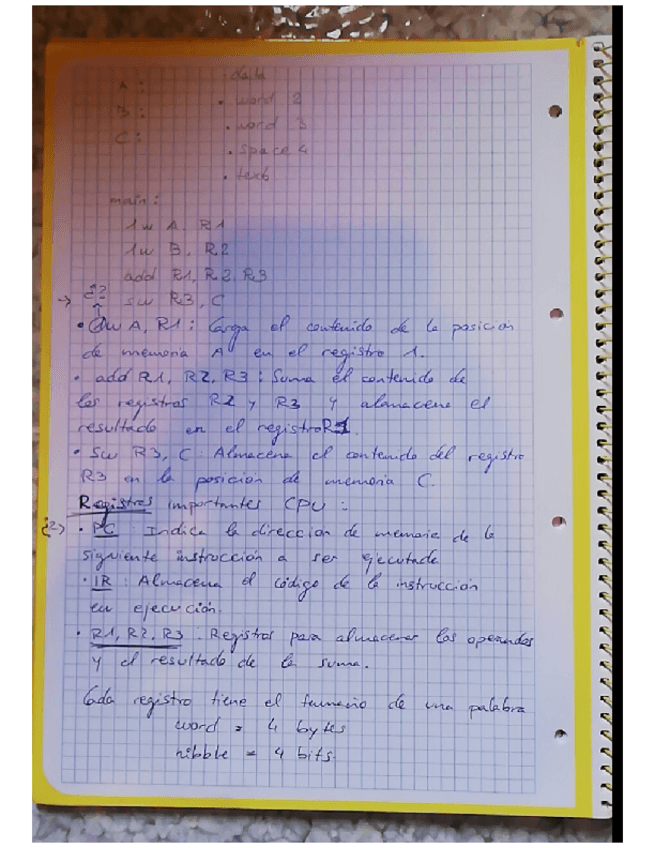 .data
A: .word 2
B: .word 3
C: .space 4
.text
main:
lw A, R1
lw B, R2
add R1, R2, R3
→ ¿? sw R3, C
• lw A, R1: Carga el contenido de la posición
de memoria A en el registro 1.
• add R1, R2, R3: Suma el contenido de
los registros R2 y R3 y almacene el
resultado en el registro R1.
• sw R3, C: Almacena el contenido del registro
R3 en la posición de memoria C.
Registros importantes CPU:
¿?→ • PC: Indica la dirección de memoria de la
siguiente instrucción a ser ejecutada
• IR: Almacena el código de la instrucción
en ejecución.
• R1, R2, R3: Registros para almacenar los operandos
y el resultado de la suma.
Cada registro tiene el tamaño de una palabra
word = 4 bytes
nibble = 4 bits.